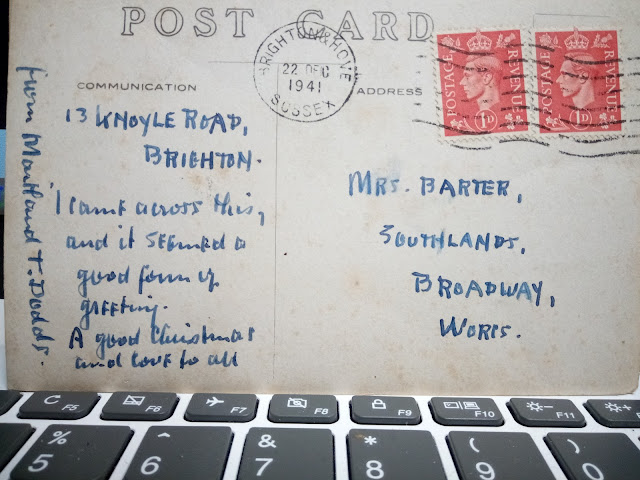 POST CARD
BRIGHTON & HOVE
22 DEC
1941
SUSSEX
COMMUNICATION
ADDRESS
POSTAGE REVENUE
1D
POSTAGE REVENUE
1D
13 KNOYLE ROAD,
BRIGHTON.
I came across this,
and it seemed a
good form of
greeting.
A good Christmas
and love to all
from Maitland T. Dodds.
MRS. BARTER,
SOUTHLANDS,
BROADWAY,
WORCS.
C F5
F6
F7
F8
F9
F10
F11
%
5
^
6
&
7
*
8
(
9
)
0